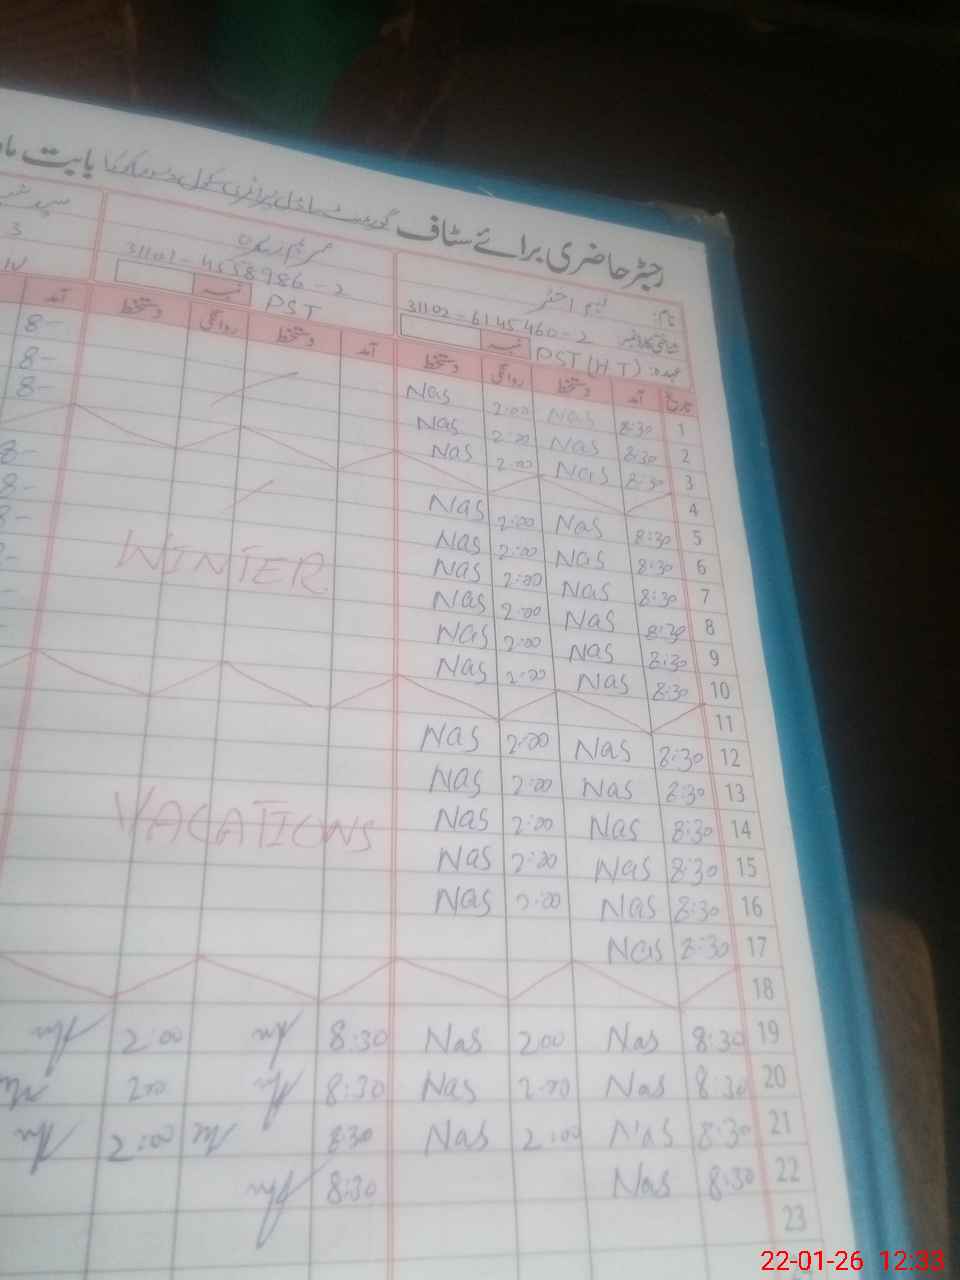 رجسٹر حاضری برائے سٹاف گورنمنٹ ماڈل پرائمری سکول بابت
نام:
31102-6145460-2 31101-4558986-2 3
عہدہ: PST (H.T) نمبر PST نمبر IV
تاریخ آمد دستخط روانگی دستخط آمد دستخط روانگی دستخط آمد
1 8:30 Nas 2:00 Nas 8-
2 8:30 Nas 2:00 Nas 8-
3 8:30 Nas 2:00 Nas 8-
4
5 8:30 Nas 2:00 Nas 8-
6 8:30 Nas 2:00 Nas 8-
7 8:30 Nas 2:00 Nas 8-
WINTER
8 8:30 Nas 2:00 Nas
9 8:30 Nas 2:00 Nas
10 8:30 Nas 2:00 Nas
11
12 8:30 Nas 2:00 Nas
13 8:30 Nas 2:00 Nas
14 8:30 Nas 2:00 Nas
VACATIONS
15 8:30 Nas 2:00 Nas
16 8:30 Nas 2:00 Nas
17 8:30 Nas
18
19 8:30 Nas 200 Nas 8:30 2:00
20 8:30 Nas 2:00 Nas 8:30 200
21 8:30 Nas 2:00 Nas 830 2:00
22 8:30 Nas 8:30
23
22-01-26 12:33